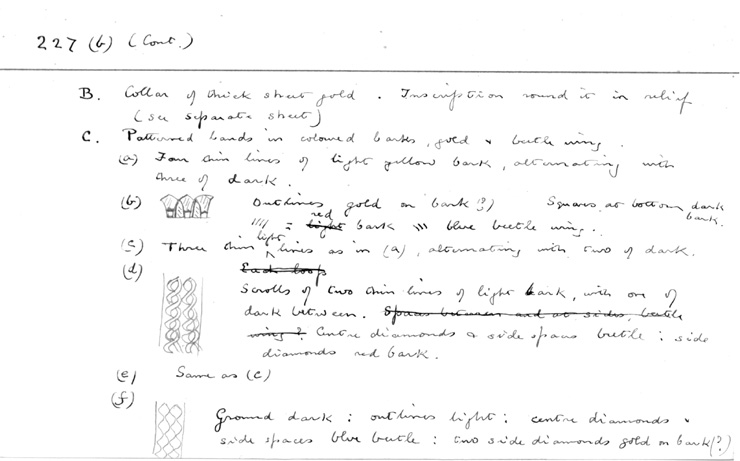 227 (b) (Cont.)
B. Collar of thick sheet gold. Inscription round it in relief
(see separate sheet)
C. Patterned bands in coloured barks, gold & beetle wing.
(a) Four thin lines of light yellow bark, alternating with
three of dark.
(b) Outlines gold on bark(?) Squares at bottom dark
bark.
//// = light red bark \\\ blue beetle wing.
(c) Three thin light lines as in (a), alternating with two of dark.
(d) Each loop
Scrolls of two thin lines of light bark, with one of
dark between. Spaces between and at sides, beetle
wing? Centre diamonds & side spaces beetle : side
diamonds red bark.
(e) Same as (c)
(f)
Ground dark : outlines light : centre diamonds &
side spaces blue beetle : two side diamonds gold on bark(?)